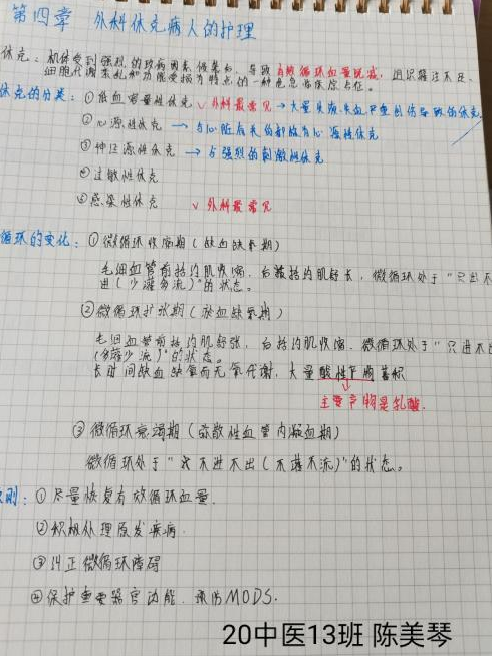 第四章 外科休克病人的护理
休克：机体受到强烈的致病因素侵袭后，导致有效循环血量锐减，组织灌注不足、
细胞代谢紊乱和功能受损为特点的一种危急临床综合征。
休克的分类：①低血容量性休克 √外科最常见→大量失液失血严重创伤导致的休克
②心源性休克 → 与心脏有关的都称为心源性休克
③神经源性休克 → 与强烈的刺激性休克
④过敏性休克
⑤感染性休克 √外科最常见
循环的变化：①微循环收缩期（缺血缺氧期）
毛细血管前括约肌收缩，后微括约肌舒长，微循环处于“只出不
进（少灌多流）”的状态。
②微循环扩张期（淤血缺氧期）
毛细血管前括约肌舒张，后括约肌收缩，微循环处于“只进不出
（多灌少流）”的状态。
长时间缺血缺氧而无氧代谢，大量酸性产物蓄积
主要产物是乳酸.
③微循环衰竭期（弥散性血管内凝血期）
微循环处于“不进不出（不灌不流）”的状态。
则：①尽量恢复有效循环血量.
②积极处理原发疾病.
③纠正微循环障碍
④保护重要器官功能.预防MODS.
20中医13班 陈美琴